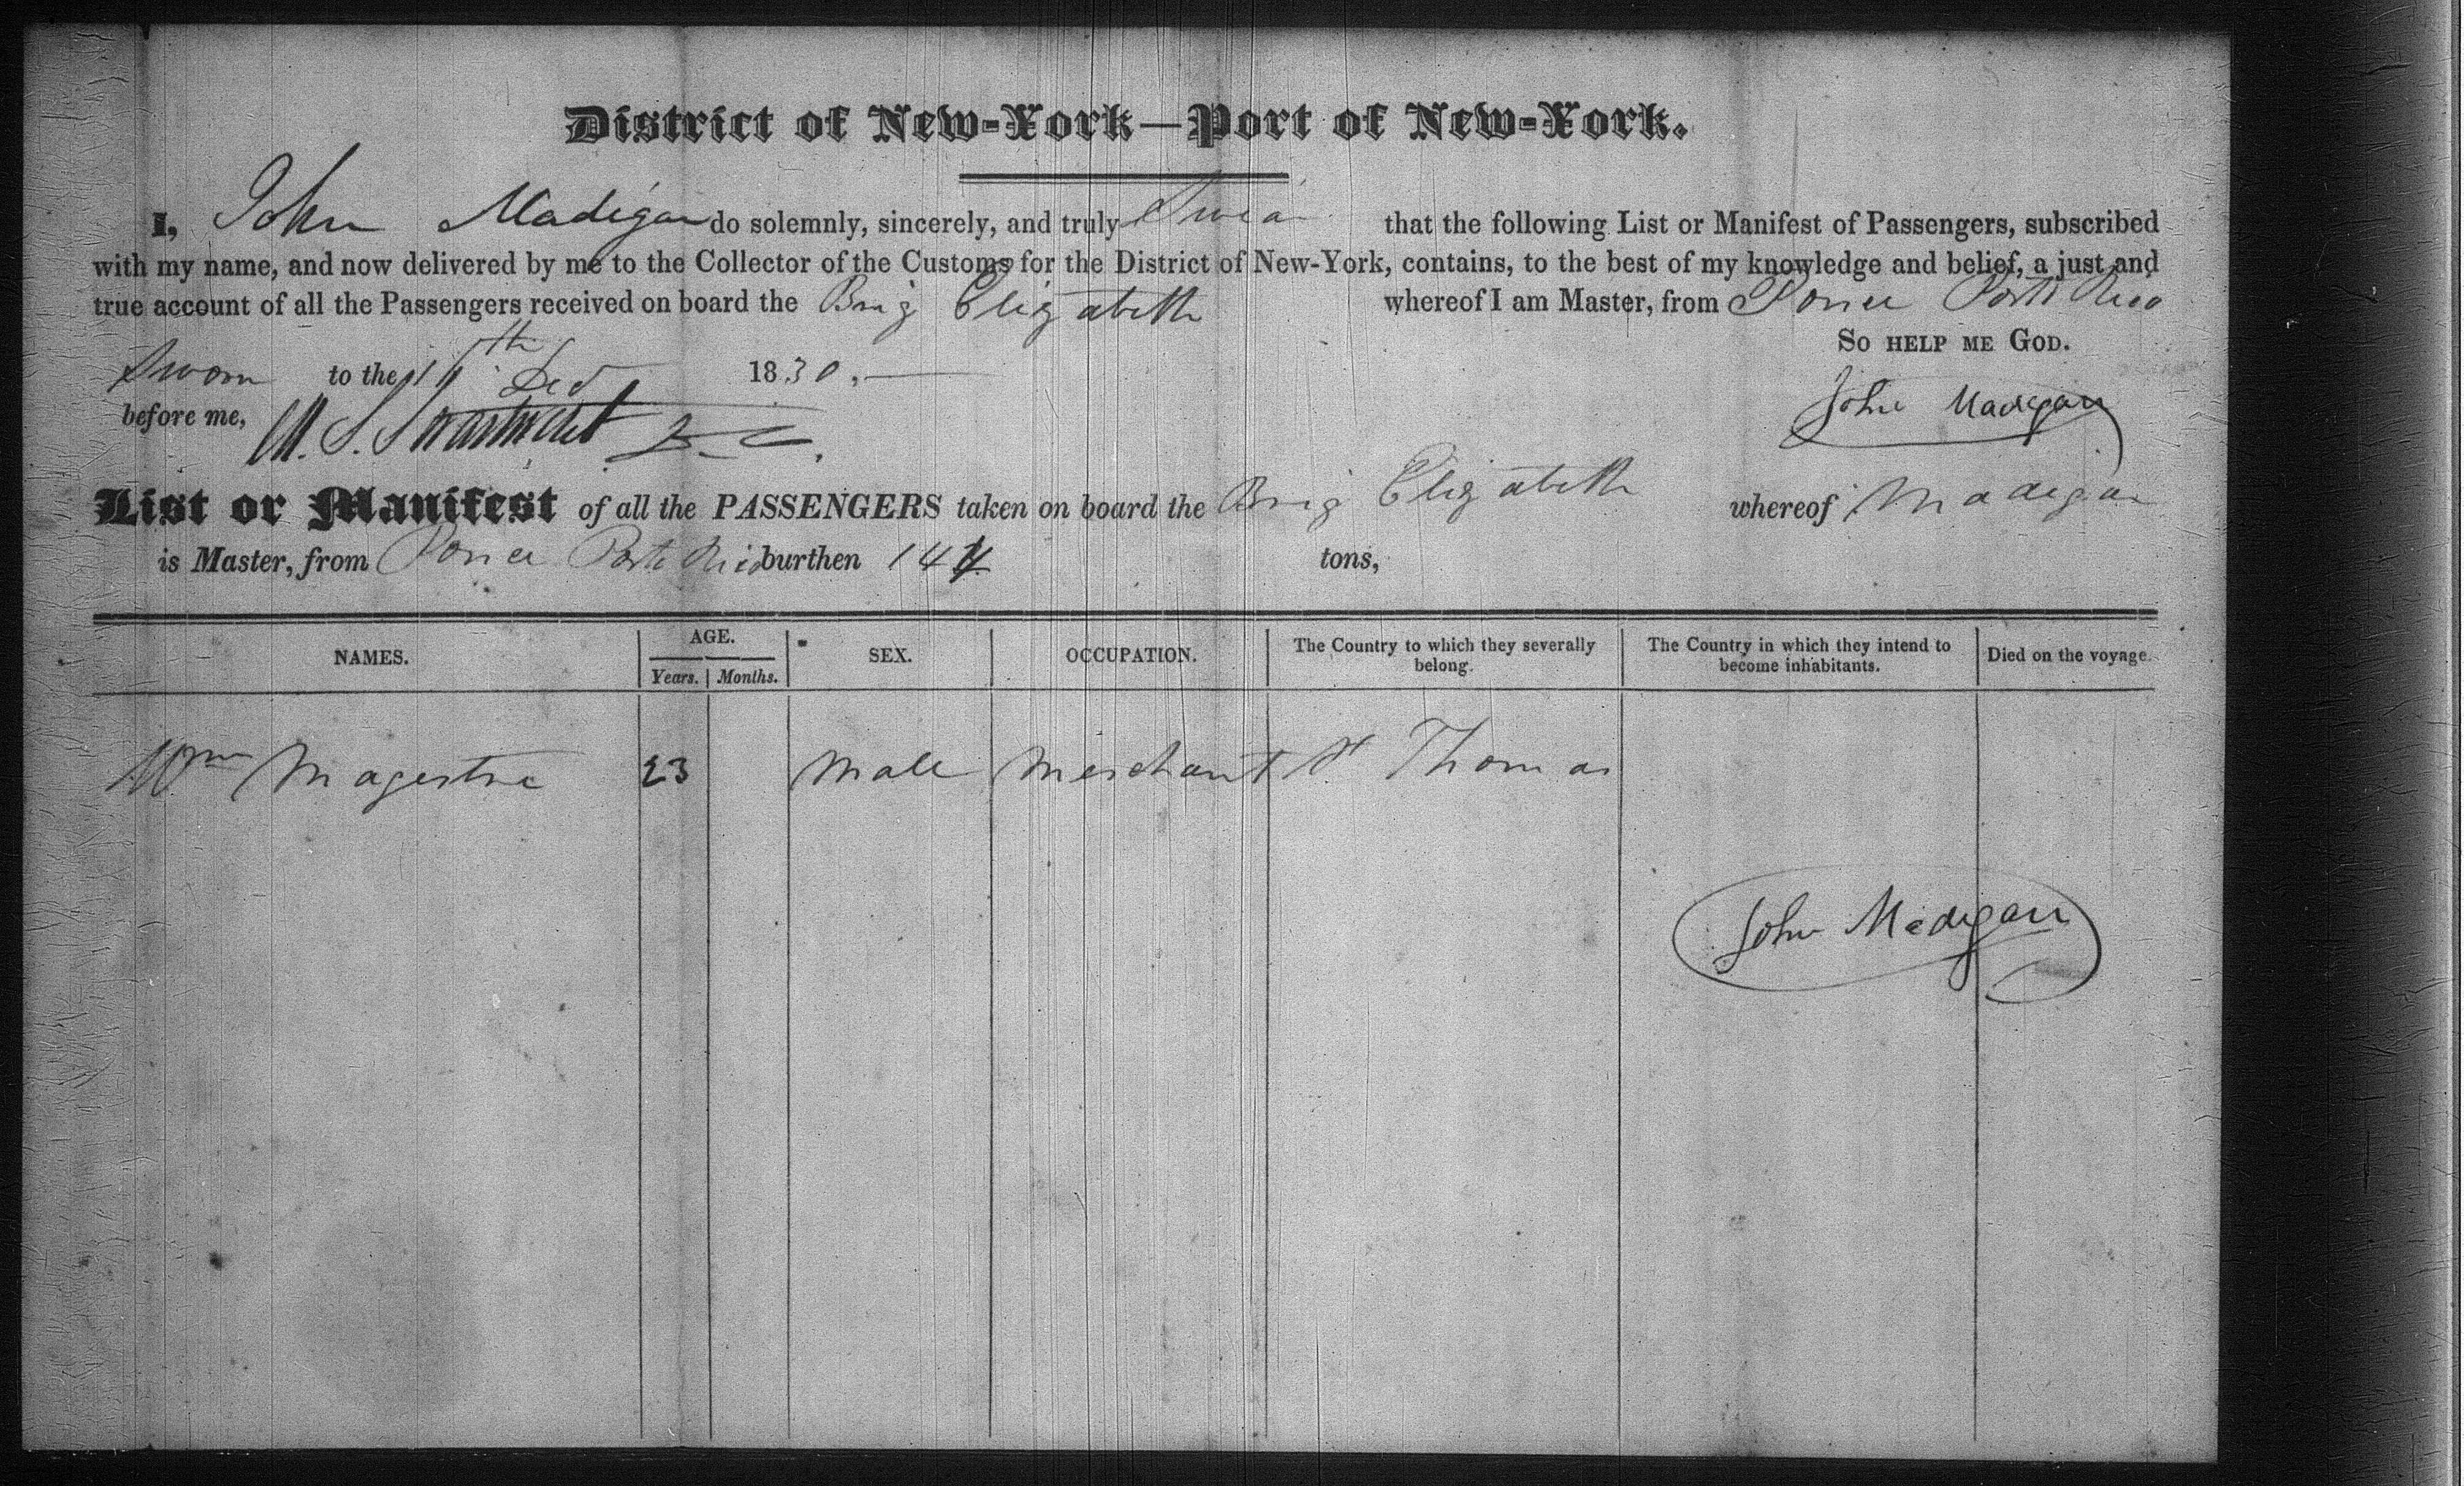 District of New-York—Port of New-York.
I, John Madigan do solemnly, sincerely, and truly Swear that the following List or Manifest of Passengers, subscribed
with my name, and now delivered by me to the Collector of the Customs for the District of New-York, contains, to the best of my knowledge and belief, a just and
true account of all the Passengers received on board the Brig Elizabeth whereof I am Master, from Ponce Porto Rico
So help me God.
Sworn to the th Dec 1830.
before me, John Madigan
List or Manifest of all the PASSENGERS taken on board the Brig Elizabeth whereof Madigan
is Master, from Ponce Porto Rico burthen 144 tons,
NAMES. AGE. Years. Months. SEX. OCCUPATION. The Country to which they severally belong. The Country in which they intend to become inhabitants. Died on the voyage.
Wm Magestre 23 Male Merchant St Thomas
John Madigan